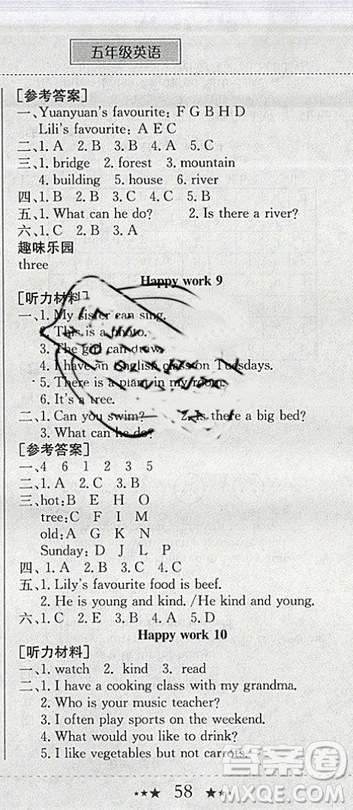 五年级英语
[参考答案]
一、Yuanyuan's favourite: F G B H D
Lili's favourite: A E C
二、1. A 2. B 3. B 4. A 5. B
三、1. bridge 2. forest 3. mountain
4. building 5. house 6. river
四、1. B 2. A 3. B 4. B
五、1. What can he do? 2. Is there a river?
六、1. C 2. B 3. A
趣味乐园
three
Happy work 9
[听力材料]
一、1. My sister can sing.
2. This is a photo.
3. The girl can draw.
4. I have an English class on Tuesdays.
5. There is a plant in my room.
6. It's a tree.
二、1. Can you swim? 2. Is there a big bed?
3. What can he do?
[参考答案]
一、4 6 1 2 3 5
二、1. A 2. C 3. B
三、hot: B E H O
tree: C F I M
old: A G K N
Sunday: D J L
四、1. A 2. C 3. B 4. B
五、1. Lily's favourite food is beef.
2. He is young and kind. /He is kind and young.
六、1. C 2. B 3. A 4. A 5. D
Happy work 10
[听力材料]
一、1. watch 2. kind 3. read
二、1. I have a cooking class with my grandma.
2. Who is your music teacher?
3. I often play sports on the weekend.
4. What would you like to drink?
5. I like vegetables but not carrots.
★★★ 58 ★★★
答案圈
MXQE.COM